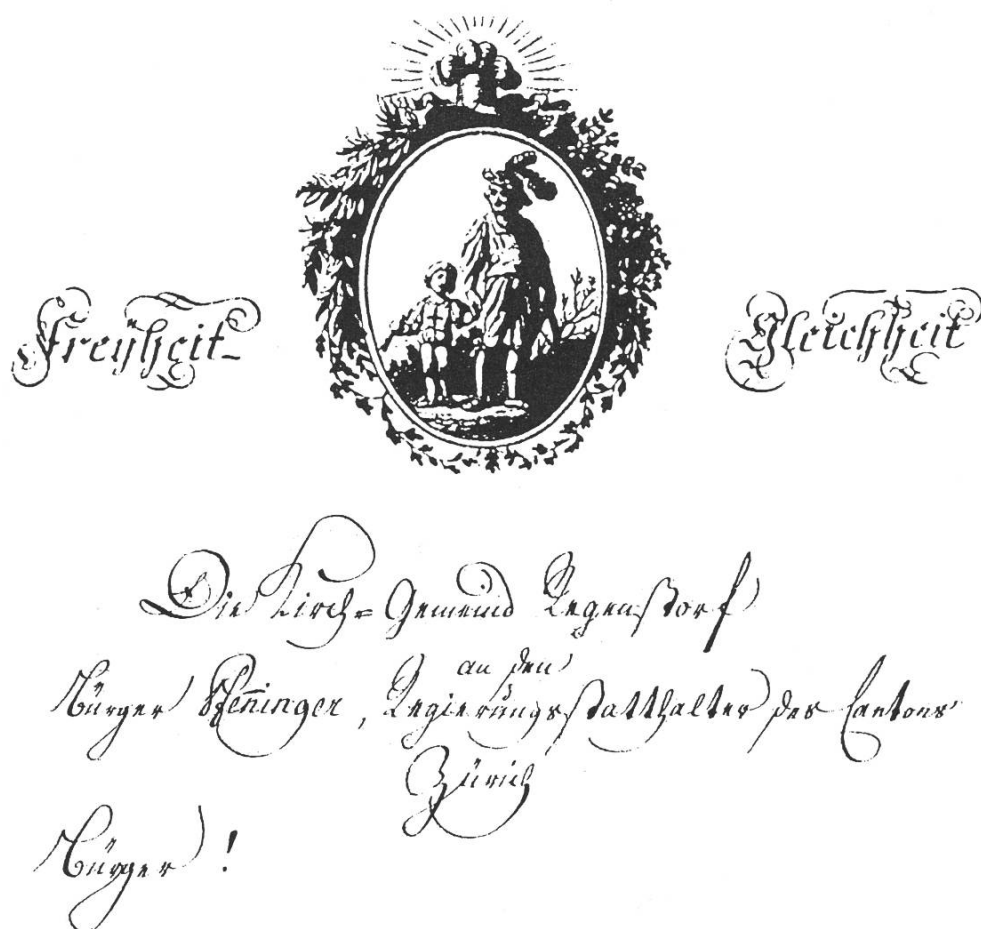 Freÿheit_ Gleichheit
Die Kirch= Gemeind Regenstorf
an den
Bürger Pfeñinger, Regierungsstatthalter des Cantons
Zürich
Bürger !